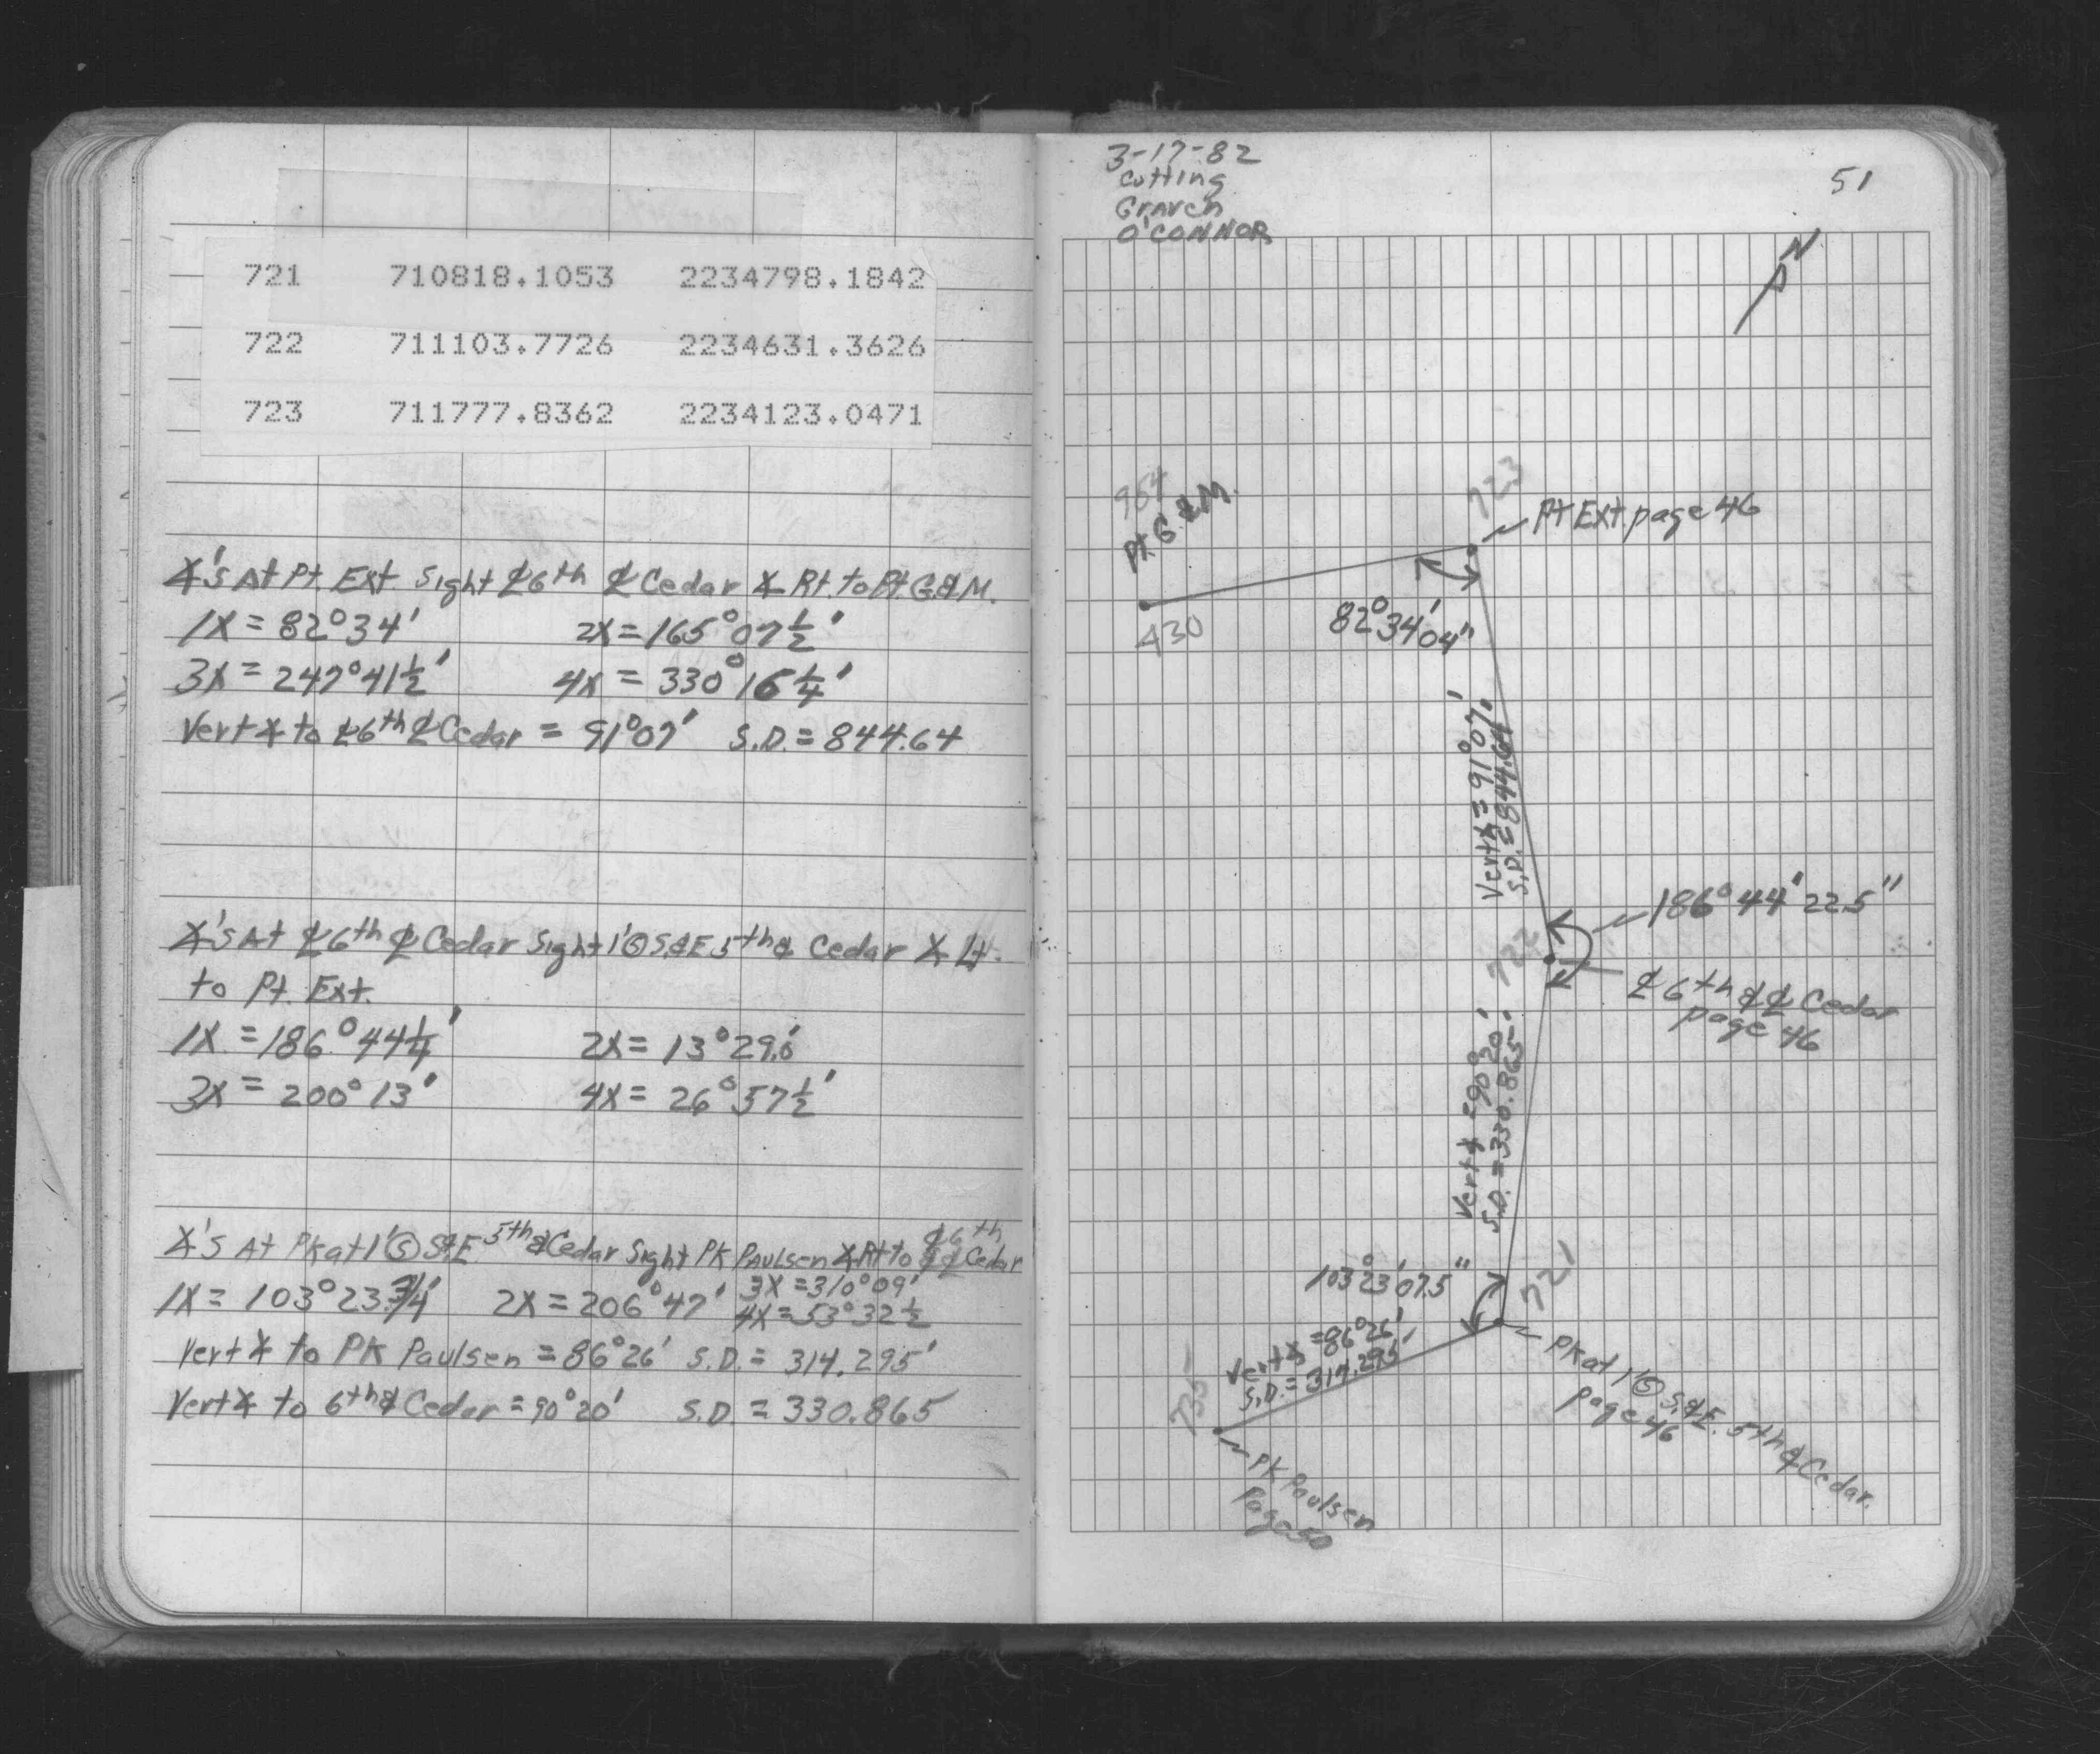 721 710818.1053 2234798.1842
722 711103.7726 2234631.3626
723 711777.8362 2234123.0471
∡'s At Pt. Ext. Sight ℄6th ℄Cedar ∡ Rt. to Pt. G.&M.
1X = 82°34' 2X = 165°07½'
3X = 247°41½' 4X = 330°16¼'
Vert∡ to ℄6th ℄Cedar = 91°07' S.D. = 844.64
∡'s At ℄6th ℄Cedar Sight 1'Ⓢ S.&E 5th & Cedar ∡ Lt.
to Pt. Ext.
1X = 186°44¼' 2X = 13°29.0'
3X = 200°13' 4X = 26°57½'
∡'s At Pk at 1'Ⓢ S&E 5th & Cedar Sight PK PAULSEN ∡ Rt to ℄6th & ℄Cedar
1X = 103°23¾' 2X = 206°47' 3X = 310°09'
4X = 53°32½
Vert∡ to PK Paulsen = 86°26' S.D. = 314.295'
Vert∡ to 6th & Cedar = 90°20' S.D. = 330.865
3-17-82
Cutting
Graven
O'CONNOR
51
N
954
Pt. G.&M.
723
Pt Ext. page 46
430
82°34'04"
Vert∡ = 91°07'
S.D. = 844.64
186°44'22.5"
722
℄6th & ℄Cedar
page 46
Vert∡ = 90°20'
S.D. = 330.865'
103°23'07.5"
721
Vert∡ = 86°26'
S.D. = 314.295'
735
PK at 1'Ⓢ S.&E. 5th & Cedar.
page 46
PK Paulsen
Page 50